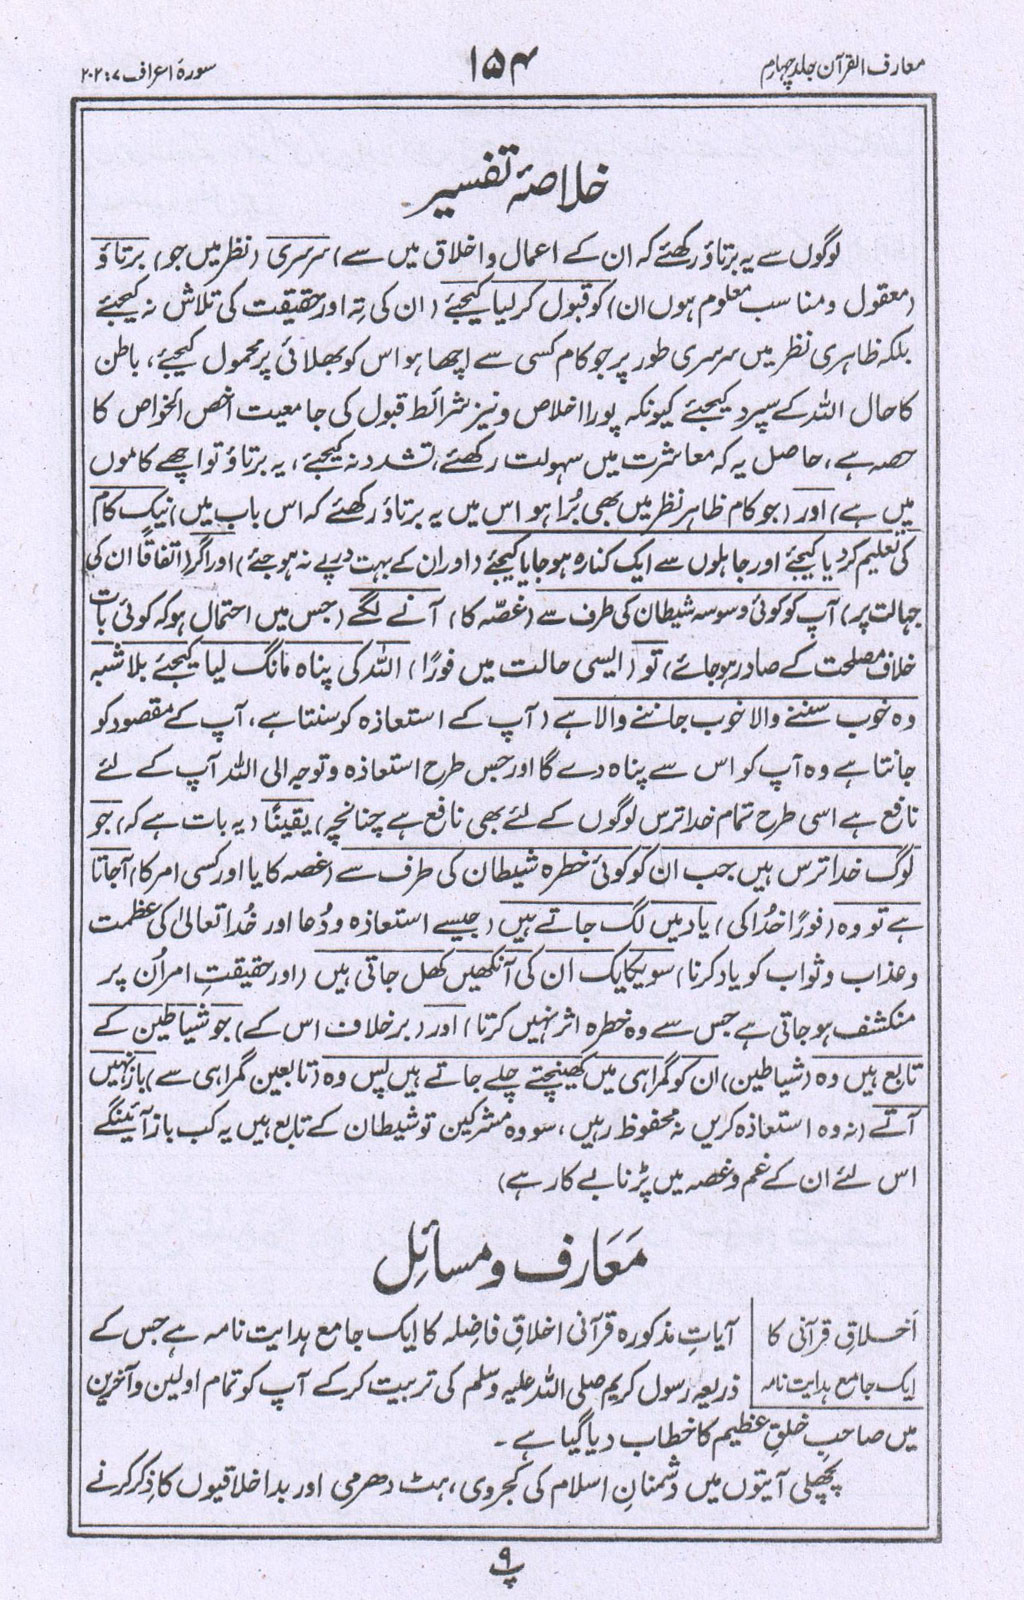 معارف القرآن جلد چہارم
۱۵۴
سورۂ اعراف ۷:۲۰۲
خلاصۂ تفسیر
لوگوں سے یہ برتاؤ رکھئے کہ ان کے اعمال و اخلاق میں سے) سرسری (نظر میں جو) برتاؤ
(معقول و مناسب معلوم ہوں ان) کو قبول کر لیا کیجئے (ان کی تہ اور حقیقت کی تلاش نہ کیجئے
بلکہ ظاہری نظر میں سرسری طور پر جو کام کسی سے اچھا ہو اس کو بھلائی پر محمول کیجئے، باطن
کا حال اللہ کے سپرد کیجئے کیونکہ پورا اخلاص و نیز شرائط قبول کی جامعیت اخص الخواص کا
حصہ ہے، حاصل یہ کہ معاشرت میں سہولت رکھئے، تشدد نہ کیجئے، یہ برتاؤ تو اچھے کاموں
میں ہے) اور (جو کام ظاہر نظر میں بھی بُرا ہو اس میں یہ برتاؤ رکھئے کہ اس باب میں) نیک کام
کی تعلیم کر دیا کیجئے اور جاہلوں سے ایک کنارہ ہو جایا کیجئے (اور ان کے بہت درپے نہ ہو جئے) اور اگر (اتفاقاً ان کی
جہالت پر) آپ کو کوئی وسوسہ شیطان کی طرف سے (غصّہ کا) آنے لگے (جس میں احتمال ہو کہ کوئی بات
خلاف مصلحت کے صادر ہو جائے) تو (ایسی حالت میں فورًا) اللہ کی پناہ مانگ لیا کیجئے بلا شبہ
وہ خوب سننے والا خوب جاننے والا ہے (آپ کے استعاذہ کو سنتا ہے، آپ کے مقصود کو
جانتا ہے وہ آپ کو اس سے پناہ دے گا اور جس طرح استعاذہ و توجہ الی اللہ آپ کے لئے
نافع ہے اسی طرح تمام خدا ترس لوگوں کے لئے بھی نافع ہے چنانچہ) یقینًا (یہ بات ہے کہ) جو
لوگ خدا ترس ہیں جب ان کو کوئی خطرہ شیطان کی طرف سے (غصہ کا یا اور کسی امر کا) آجاتا
ہے تو وہ (فورًا خدا کی) یاد میں لگ جاتے ہیں (جیسے استعاذہ و دُعا اور خُدا تعالیٰ کی عظمت
و عذاب و ثواب کو یاد کرنا) سو یکایک ان کی آنکھیں کھل جاتی ہیں (اور حقیقتِ امر اُن پر
منکشف ہو جاتی ہے جس سے وہ خطرہ اثر نہیں کرتا) اور (برخلاف اس کے) جو شیاطین کے
تابع ہیں وہ (شیاطین) ان کو گمراہی میں کھینچتے چلے جاتے ہیں پس وہ (تابعین گمراہی سے) باز نہیں
آتے (نہ وہ استعاذہ کریں نہ محفوظ رہیں، سو وہ مشرکین تو شیطان کے تابع ہیں یہ کب باز آئینگے
اس لئے ان کے غم و غصہ میں پڑنا بے کار ہے)
مَعَارف و مسائِل
اَخلاقِ قرآنی کا
ایک جامع ہدایت نامہ
آیاتِ مذکورہ قرآنی اخلاقِ فاضِلہ کا ایک جامع ہدایت نامہ ہے جس کے
ذریعہ رسول کریم صلی اللہ علیہ وسلم کی تربیت کر کے آپ کو تمام اولین و آخرین
میں صاحبِ خلقِ عظیم کا خطاب دیا گیا ہے۔
پچھلی آیتوں میں دُشمنانِ اسلام کی کجروی، ہٹ دھرمی اور بد اخلاقیوں کا ذِکر کرنے
پ ۹